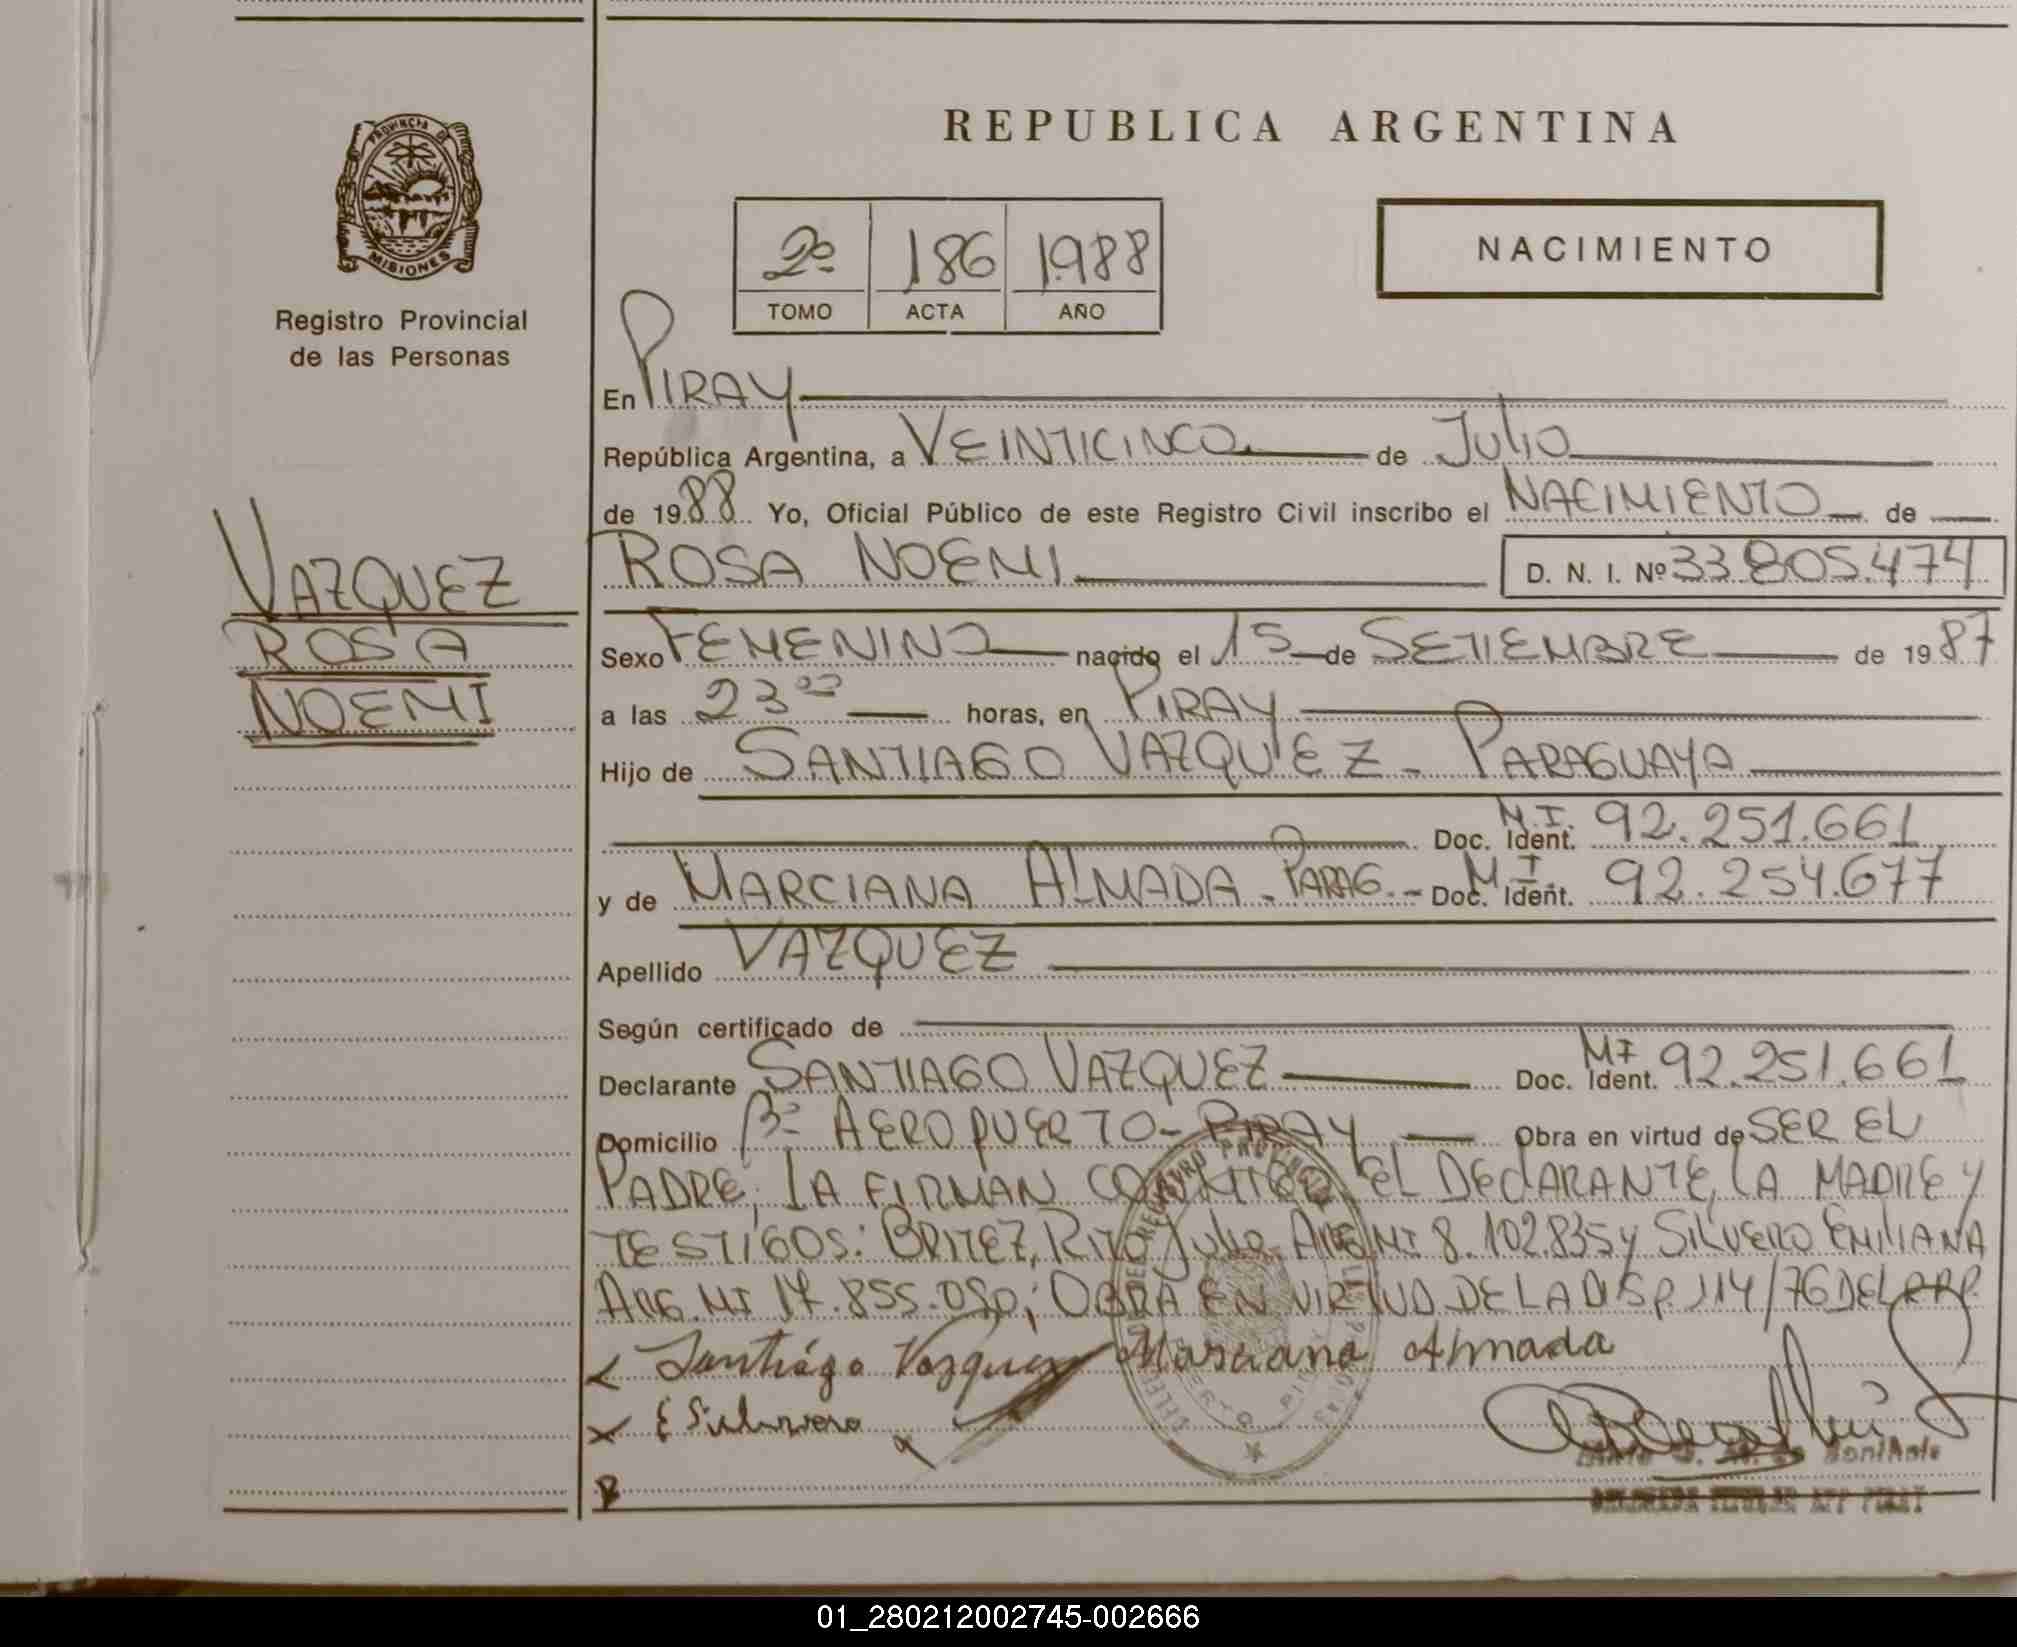 PROVINCIA DE
MISIONES
Registro Provincial
de las Personas
VAZQUEZ
ROSA
NOEMI
REPUBLICA ARGENTINA
2º 186 1988
TOMO ACTA AÑO
NACIMIENTO
En PIRAY
República Argentina, a VEINTICINCO de JULIO
de 1988 Yo, Oficial Público de este Registro Civil inscribo el NACIMIENTO de
ROSA NOEMI D. N. I. Nº 33.805.474
Sexo FEMENINO nacido el 15 de SETIEMBRE de 1987
a las 23 00 horas, en PIRAY
Hijo de SANTIAGO VAZQUEZ - PARAGUAYA
Doc. Ident. M.I. 92.251.661
y de MARCIANA ALMADA - PARAG. - Doc. Ident. M.I. 92.254.677
Apellido VAZQUEZ
Según certificado de
Declarante SANTIAGO VAZQUEZ Doc. Ident. MI 92.251.661
Domicilio Bº AEROPUERTO - PIRAY Obra en virtud de SER EL
PADRE, LA FIRMAN EL DECLARANTE, LA MADRE Y
TESTIGOS: BRITEZ, RITO JULIO ARG MI 8.102.835 Y SILVERO EMILIANA
ARG. MI 17.855.080; OBRA EN VIRTUD DE LA DISP. 114/76 DEL RPP.
Santiágo Vazquez Marciana Almada
E Silvero
01_280212002745-002666